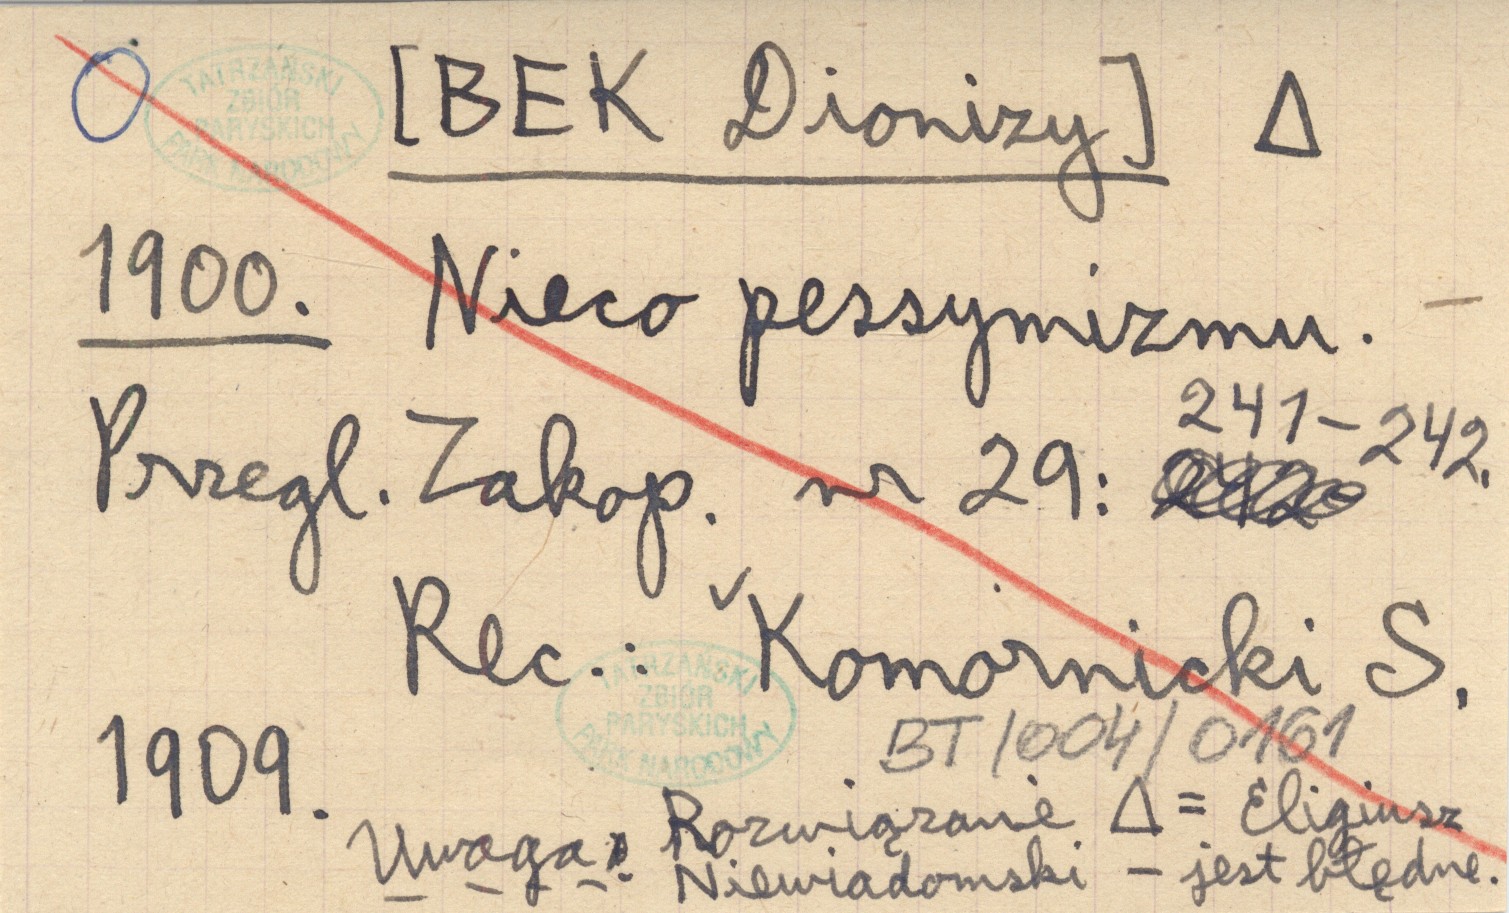 [BEK Dionizy] Δ
TATRZAŃSKI
ZBIÓR
PARYSKICH
PARK NARODOWY
1900. Nieco pessymizmu. –
Przegl. Zakop. nr 29: 241–242.
Rec.: Komornicki S.
TATRZAŃSKI
ZBIÓR
PARYSKICH
PARK NARODOWY
1909.
BT/004/0161
Uwaga: Rozwiązanie Δ = Eligiusz
Niewiadomski – jest błędne.